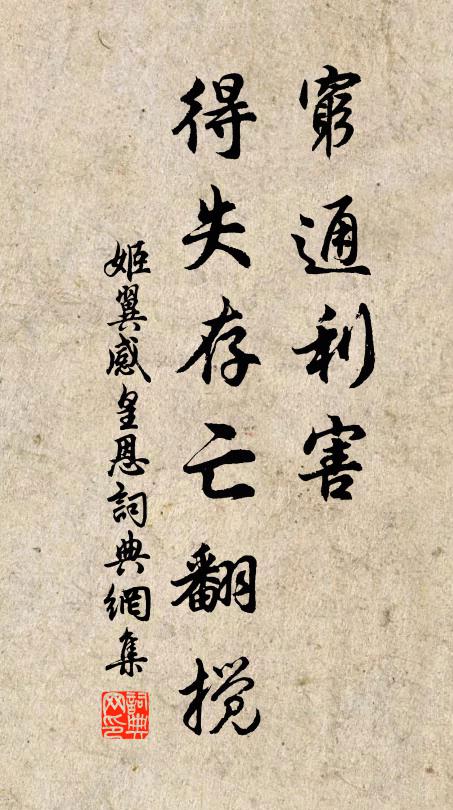 窮通利害
得失存亡翻搅
姬翼感皇恩詞典網集
詞典
网印